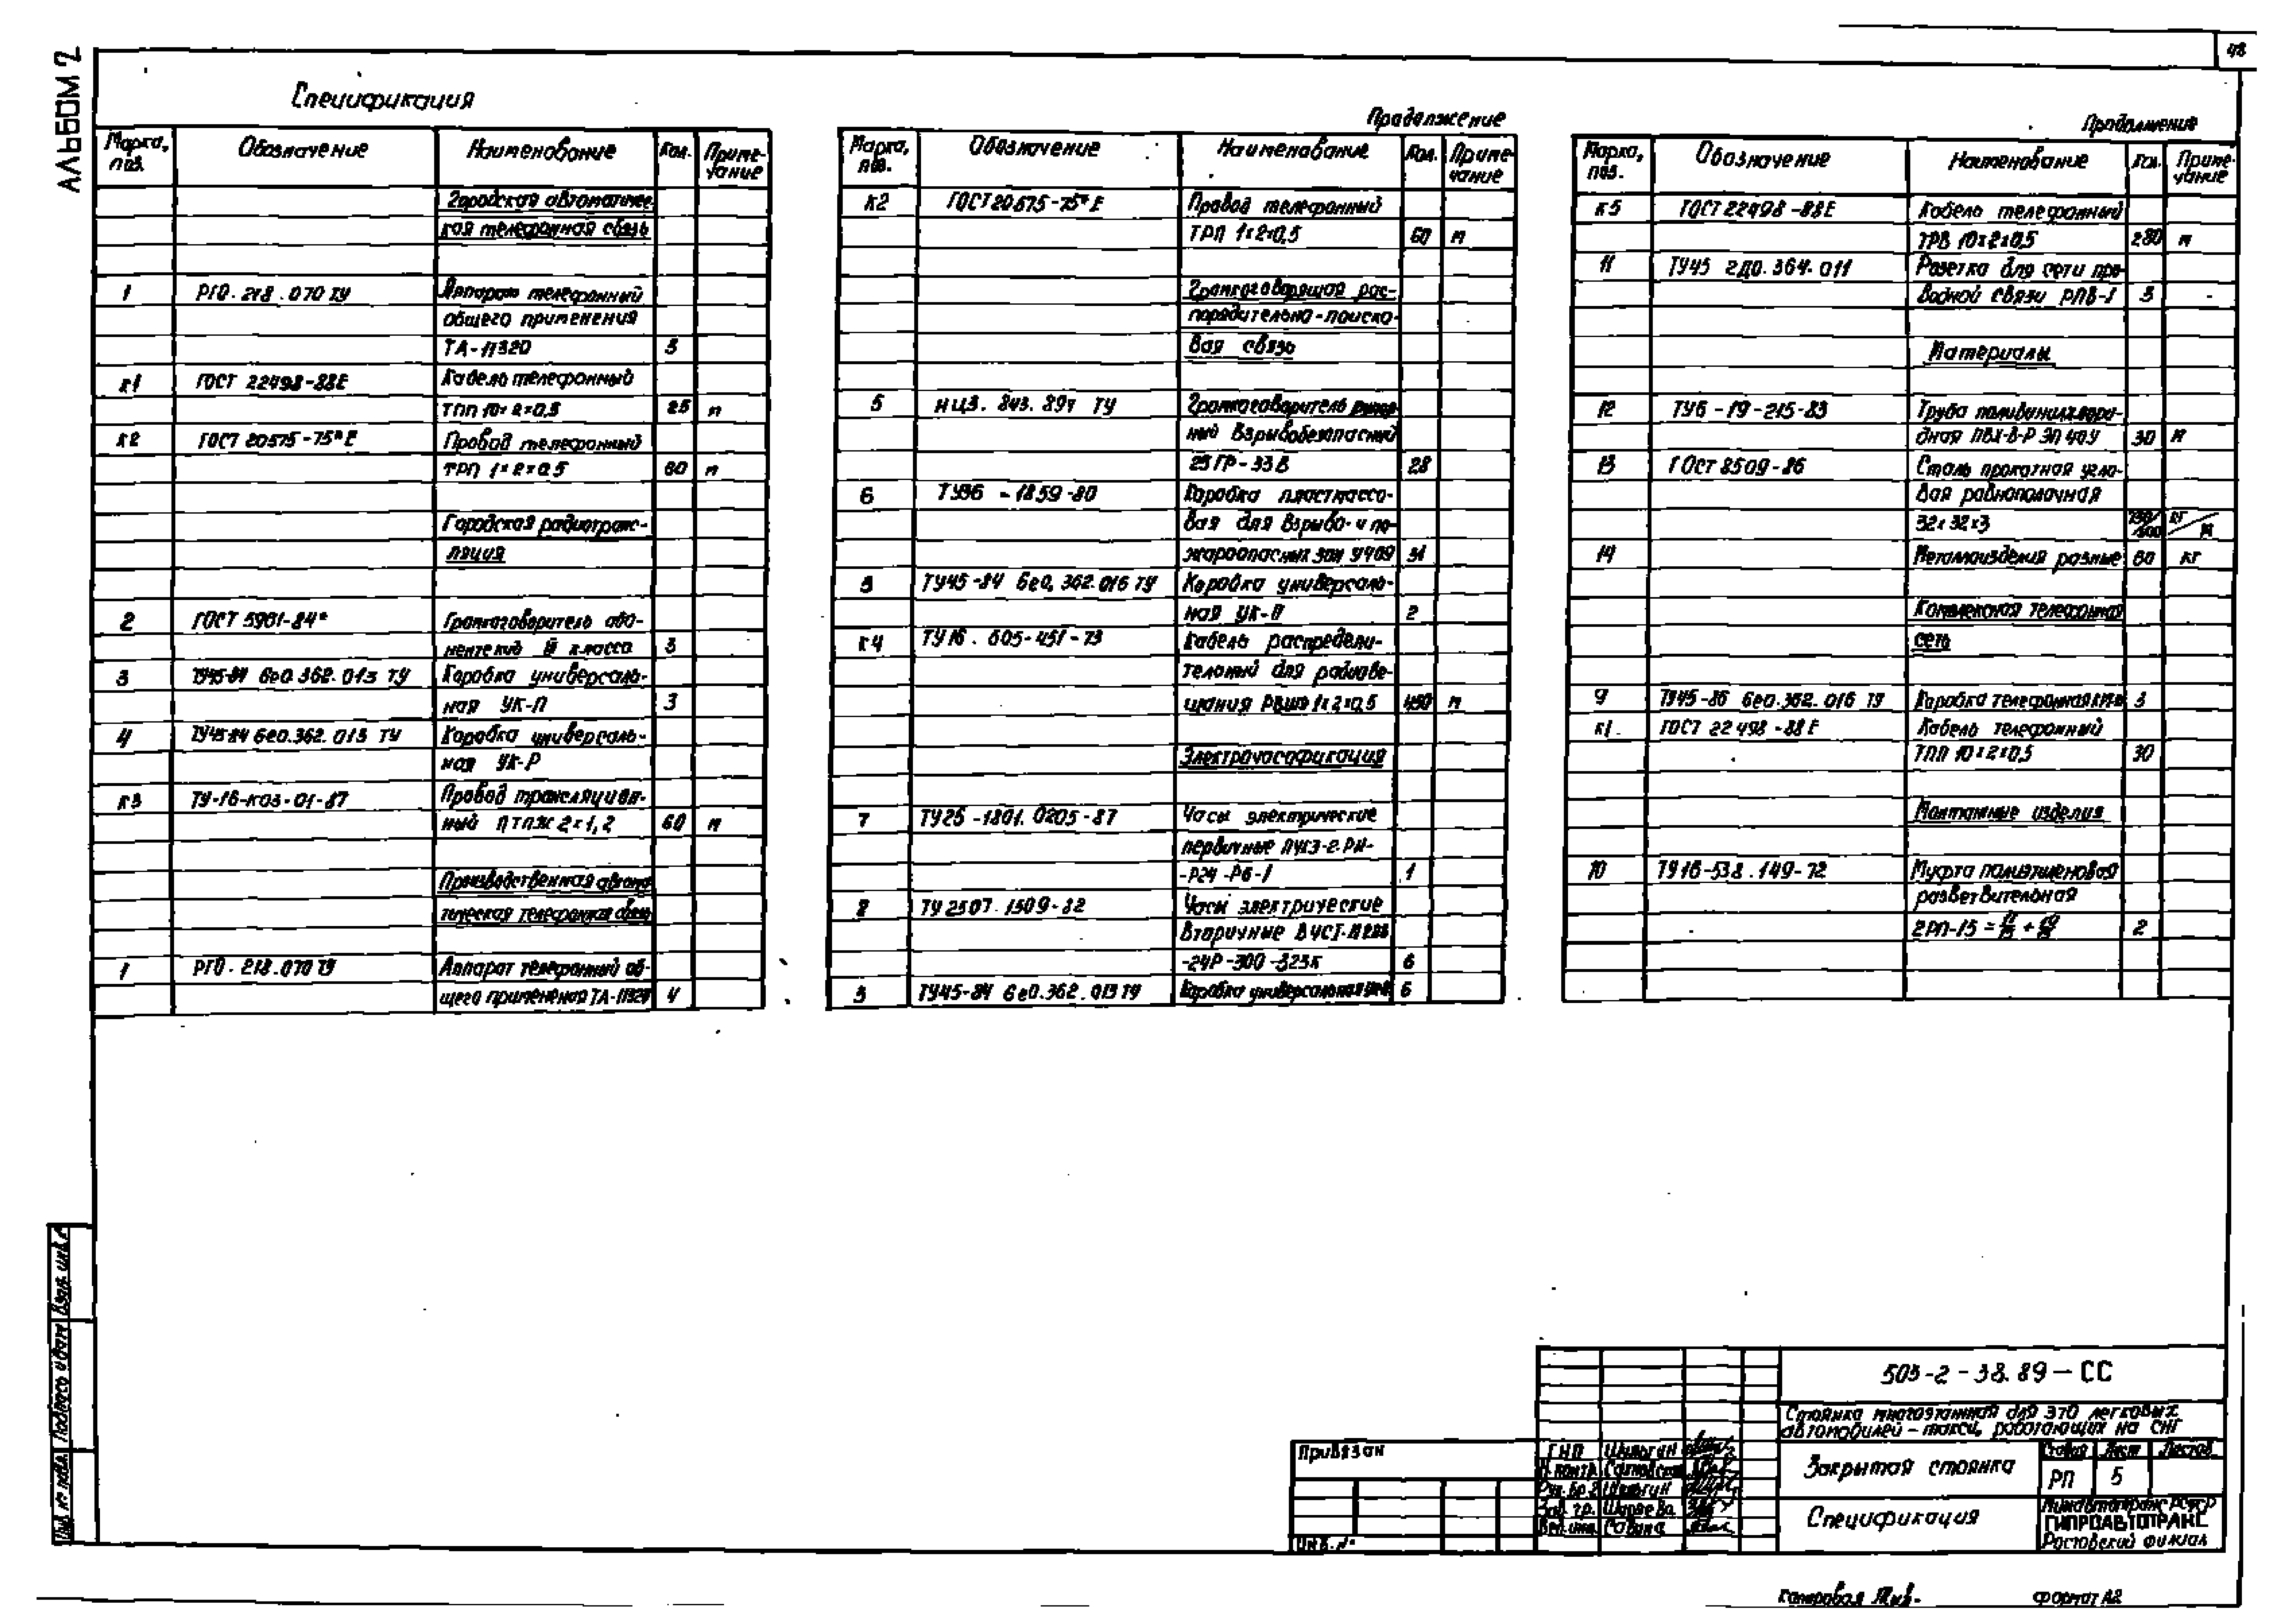 АЛЬБОМ 2
48
Спецификация
Марка, поз. Обозначение Наименование Кол. Примечание
Городская автоматичес-
кая телефонная связь
1 РГО.218.070 ТУ Аппарат телефонный
общего применения
ТА-11320 3
к1 ГОСТ 22498-88Е Кабель телефонный
ТПП 10×2×0,5 25 м
к2 ГОСТ 20575-75*Е Провод телефонный
ТРП 1×2×0,5 60 м
Городская радиотранс-
ляция
2 ГОСТ 5961-84* Громкоговоритель або-
нентский III класса 3
3 ТУ45-84 6е0.362.013 ТУ Коробка универсаль-
ная УК-П 3
4 ТУ45-84 6е0.362.013 ТУ Коробка универсаль-
ная УК-Р
к3 ТУ-16-К03-01-87 Провод трансляцион-
ный ПТПЖ 2×1,2 60 м
Производственная автома-
тическая телефонная связь
1 РГО.218.070 ТУ Аппарат телефонный об-
щего применения ТА-11320 4
Продолжение
Марка, поз. Обозначение Наименование Кол. Примечание
к2 ГОСТ 20575-75*Е Провод телефонный
ТРП 1×2×0,5 60 м
Громкоговорящая рас-
порядительно-поиско-
вая связь
5 НЦ3.843.891 ТУ Громкоговоритель рупор-
ный взрывобезопасный
25ГР-33В 28
6 ТУ36-1859-80 Коробка пластмассо-
вая для взрыво- и по-
жароопасных зон У409 31
3 ТУ45-84 6е0.362.016 ТУ Коробка универсаль-
ная УК-П 2
к4 ТУ16.605-451-73 Кабель распредели-
тельный для радиове-
щания РВШЭ 1×2×0,5 450 м
Электрочасофикация
7 ТУ25-1801.0205-87 Часы электрические
первичные ПЧК3-2.РН-
-Р24-Р6-1 1
8 ТУ2507.1509-82 Часы электрические
вторичные
-24Р-300-323К 6
3 ТУ45-84 6е0.362.013 ТУ Коробка универсальная 6
Продолжение
Марка, поз. Обозначение Наименование Кол. Примечание
к5 ГОСТ 22498-88Е Кабель телефонный
ТРВ 10×2×0,5 280 м
11 ТУ45 2Д0.364.011 Розетка для сети про-
водной связи РПВ-1 3 -
Материалы
12 ТУ6-19-215-83 Труба поливинилхлори-
дная ПВХ-В-Р ЭП 40У 30 м
13 ГОСТ 8509-86 Сталь прокатная угло-
вая равнополочная
32×32×3 кг/м
14 Металлоизделия разные 60 кг
Комплексная телефонная
сеть
9 ТУ45-86 6е0.362.016 ТУ Коробка телефонная 3
к1. ГОСТ 22498-88Е Кабель телефонный
ТПП 10×2×0,5 30
Монтажные изделия
10 ТУ16-538.149-72 Муфта полиэтиленовая
разветвительная
2РП-15 2
Взам. инв. №
Подпись и дата
Инв. № подл.
503-2-38.89-СС
Стоянка многоэтажная для 370 легковых
автомобилей-такси, работающих на СНГ
Привязан
Инв. №
ГИП Шильгин
Н.контр. Садковская
Рук. бр.2 Шильгин
Зав. гр. Шараева
Вед. инж. Савина
Закрытая стоянка
Стадия Лист Листов
РП 5
Спецификация
Минавтотранс РСФСР
ГИПРОАВТОТРАНС
Ростовский филиал
Копировал
Формат А2